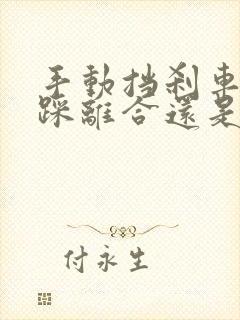 手動挡刹車
踩離合還是
付永生